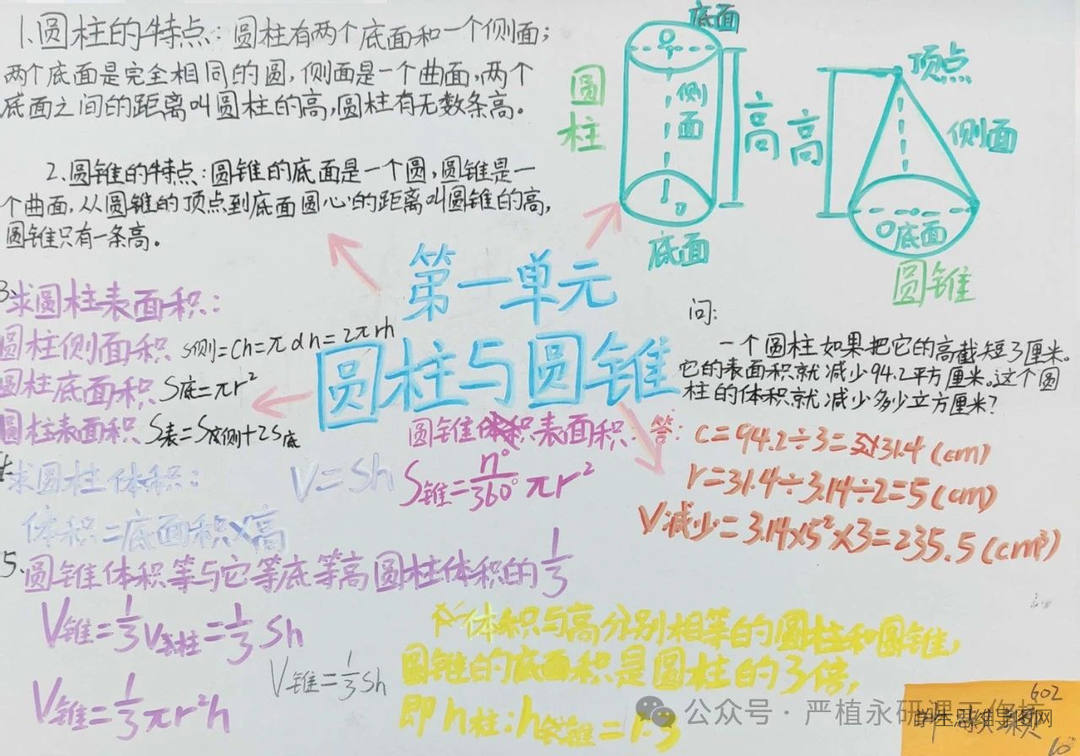 1.圆柱的特点:圆柱有两个底面和一个侧面;
两个底面是完全相同的圆,侧面是一个曲面,两个
底面之间的距离叫圆柱的高,圆柱有无数条高。
2.圆锥的特点:圆锥的底面是一个圆,圆锥是一
个曲面,从圆锥的顶点到底面圆心的距离叫圆锥的高,
圆锥只有一条高。
底面
O
侧面
圆柱
高
O
底面
顶点
高
侧面
O底面
圆锥
第一单元
圆柱与圆锥
3.求圆柱表面积:
圆柱侧面积 S侧=Ch=πdh=2πrh
圆柱底面积 S底=πr²
圆柱表面积 S表=S侧+2S底
求圆柱体积: V=Sh
体积=底面积×高
圆锥表面积:
S锥=n°/360°πr²
问:
一个圆柱如果把它的高截短3厘米。
它的表面积就减少94.2平方厘米。这个圆
柱的体积就减少多少立方厘米?
答: C=94.2÷3=31.4(cm)
r=31.4÷3.14÷2=5(cm)
V减少=3.14×5²×3=235.5(cm³)
5.圆锥体积等与它等底等高圆柱体积的1/3
V锥=1/3V柱=1/3Sh
V锥=1/3Sh
V锥=1/3πr²h
体积与高分别相等的圆柱和圆锥,
圆锥的底面积是圆柱的3倍,
即h柱:h锥=1:3
公众号·严植永研理
602
学生思维导图网